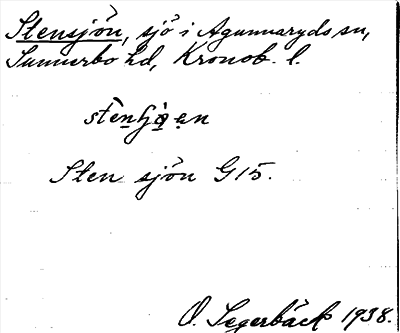 Stensjön, sjö i Agunnaryds sn,
Sunnerbo hd, Kronob. l.
Sten sjön G15.
O. Segerbäck 1938.